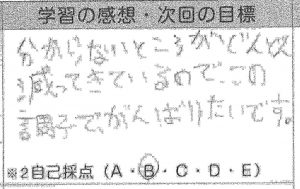 学習の感想・次回の目標
分からないところがどんどん
減ってきているので、この
調子で、がんばりたいです。
※2自己採点（A・B・C・D・E）